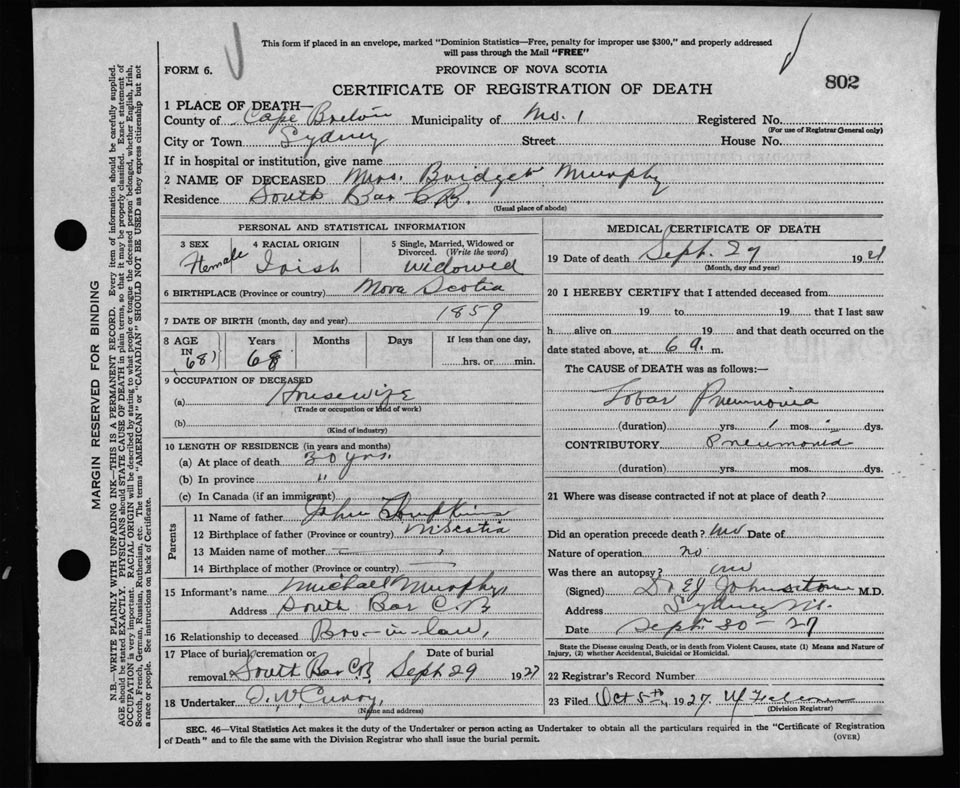 This form if placed in an envelope, marked "Dominion Statistics—Free, penalty for improper use $300," and properly addressed
will pass through the Mail "FREE"
FORM 6.
PROVINCE OF NOVA SCOTIA
802
CERTIFICATE OF REGISTRATION OF DEATH
1 PLACE OF DEATH—
County of Cape Breton Municipality of No. 1 Registered No.
(For use of Registrar General only)
City or Town Sydney Street House No.
If in hospital or institution, give name
2 NAME OF DECEASED Mrs. Bridget Murphy
Residence South Bar C.B.
(Usual place of abode)
PERSONAL AND STATISTICAL INFORMATION
3 SEX 4 RACIAL ORIGIN 5 Single, Married, Widowed or
Divorced. (Write the word)
Female Irish widowed
6 BIRTHPLACE (Province or country) Nova Scotia
7 DATE OF BIRTH (month, day and year) 1859
8 AGE Years Months Days If less than one day,
IN (68) 68 hrs. or min.
9 OCCUPATION OF DECEASED
(a) Housewife
(Trade or occupation or kind of work)
(b)
(Kind of industry)
10 LENGTH OF RESIDENCE (in years and months)
(a) At place of death 30 yrs.
(b) In province "
(c) In Canada (if an immigrant)
Parents
11 Name of father John Tompkins
12 Birthplace of father (Province or country) N Scotia
13 Maiden name of mother —
14 Birthplace of mother (Province or country) —
15 Informant's name Michael Murphy
Address South Bar C.B
16 Relationship to deceased Bro-in-law,
17 Place of burial, cremation or Date of burial
removal South Bar C.B. Sept 29 1927
18 Undertaker
(Name and address)
MEDICAL CERTIFICATE OF DEATH
19 Date of death Sept. 27 192
(Month, day and year)
20 I HEREBY CERTIFY that I attended deceased from
19 to 19 that I last saw
h alive on 19 and that death occurred on the
date stated above, at 6 a. m.
The CAUSE OF DEATH was as follows:—
Lobar Pneumonia
(duration) yrs. 1 mos. dys.
CONTRIBUTORY Pneumonia
(duration) yrs. mos. dys.
21 Where was disease contracted if not at place of death?
Did an operation precede death? No Date of
Nature of operation no
Was there an autopsy? no
(Signed) Dr EJ Johnstone M.D.
Address Sydney
Date Sept. 30 - 27
State the Disease causing Death, or in death from Violent Causes, state (1) Means and Nature of
Injury, (2) whether Accidental, Suicidal or Homicidal.
22 Registrar's Record Number
23 Filed Oct 5th, 1927.
(Division Registrar)
SEC. 46—Vital Statistics Act makes it the duty of the Undertaker or person acting as Undertaker to obtain all the particulars required in the "Certificate of Registration
of Death" and to file the same with the Division Registrar who shall issue the burial permit.
(OVER)
MARGIN RESERVED FOR BINDING
N.B.—WRITE PLAINLY WITH UNFADING INK—THIS IS A PERMANENT RECORD. Every item of information should be carefully supplied.
AGE should be stated EXACTLY. PHYSICIANS should STATE CAUSE OF DEATH in plain terms, so that it may be properly classified. Exact statement of
OCCUPATION is very important. RACIAL ORIGIN will be described by stating to what people or tongue the deceased person belonged, whether English, Irish,
Scotch, French, German, Russian, Ruthenian, etc. The terms "AMERICAN" or "CANADIAN" SHOULD NOT BE USED as they express citizenship but not
a race or people. See instructions on back of Certificate.